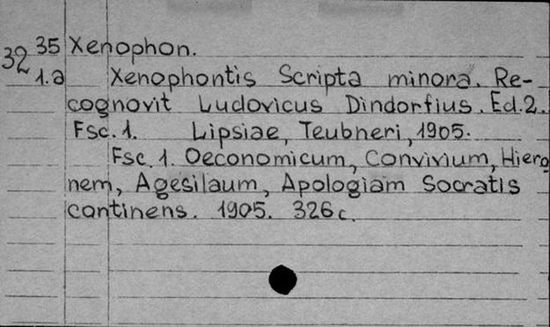 32 35 Xenophon.
1.a Xenophontis Scripta minora. Re-
cognovit Ludovicus Dindorfius. Ed.2.
Fsc. 1. Lipsiae, Teubneri, 1905.
Fsc. 1. Oeconomicum, Convivium, Hiero
nem, Agesilaum, Apologiam Socratis
continens. 1905. 326 c.